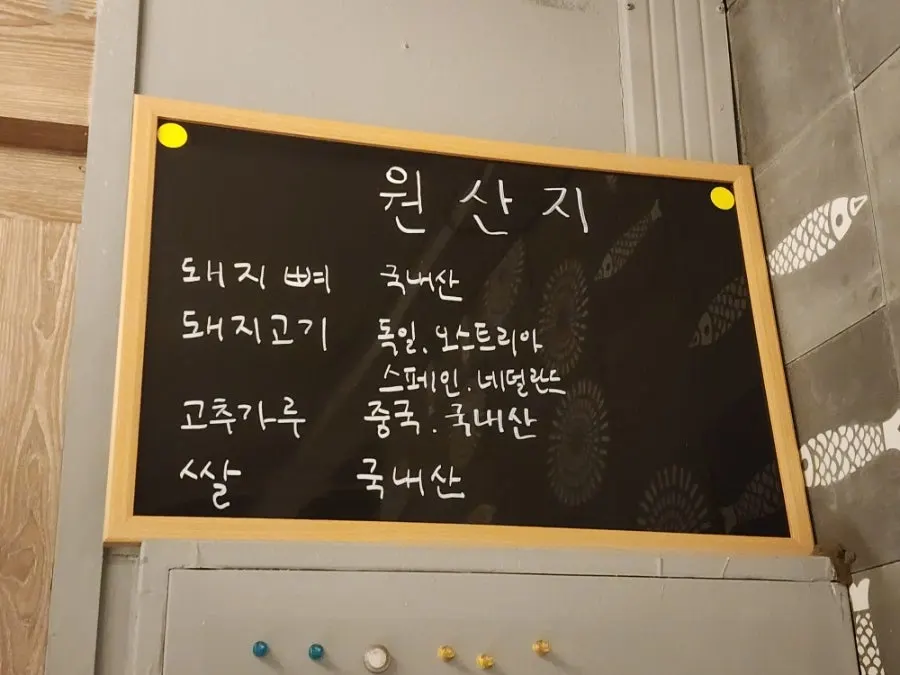 원산지
돼지뼈 국내산
돼지고기 독일. 오스트리아
스페인. 네덜란드
고추가루 중국. 국내산
쌀 국내산